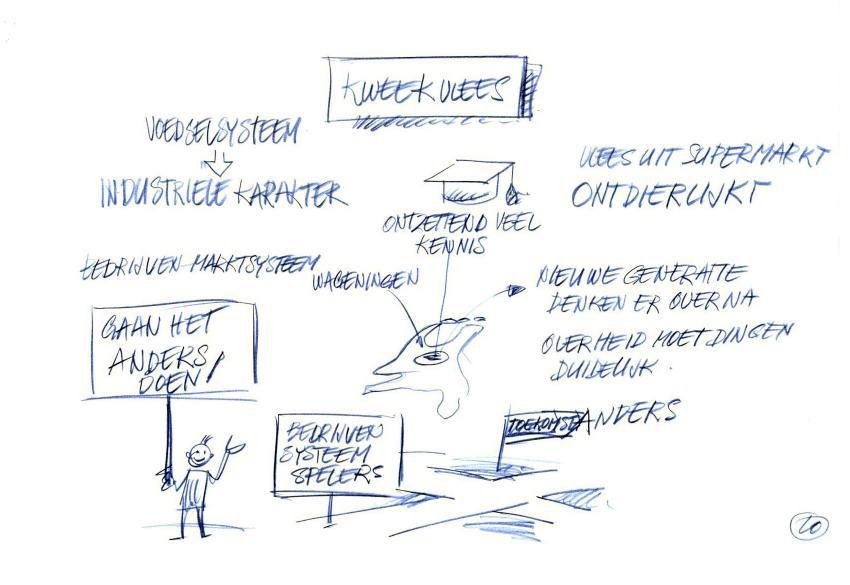 KWEEKVLEES
VOEDSELSYSTEEM
INDUSTRIELE KARAKTER
VLEES UIT SUPERMARKT
ONTDIERLIJKT
ONTZETTEND VEEL
KENNIS
BEDRIJVEN-MARKTSYSTEEM
WAGENINGEN
NIEUWE GENERATIE
DENKEN ER OVER NA
OVERHEID MOET DINGEN
DUIDELIJK.
GAAN HET
ANDERS
DOEN!
BEDRIJVEN
SYSTEEM
SPELERS
TOEKOMST ANDERS
20